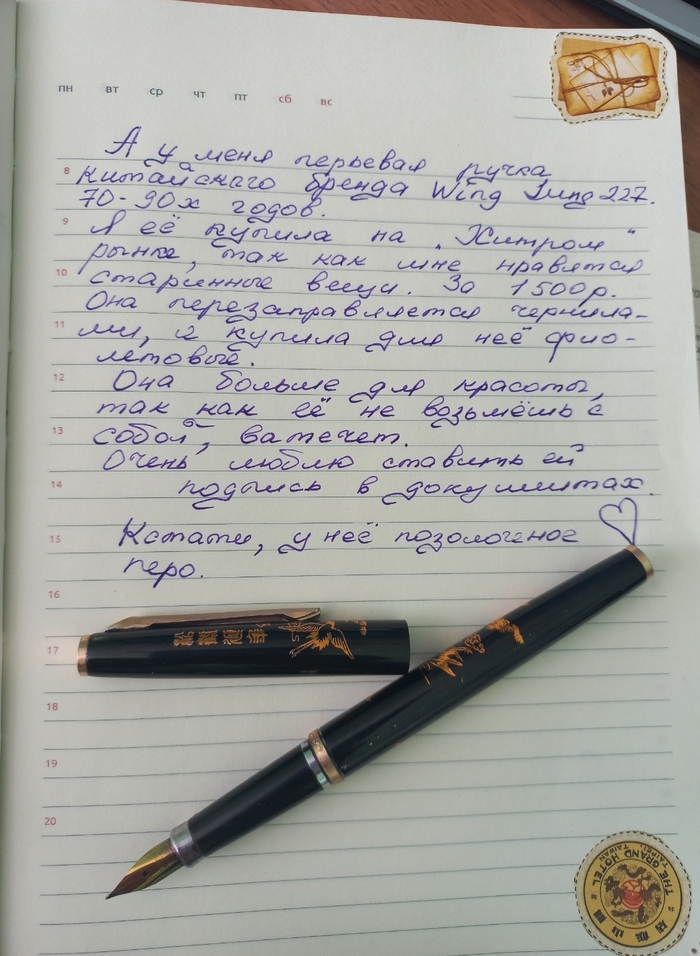 пн вт ср чт пт сб вс
А у меня перьевая ручка
8 китайскаго бренда Wing Sung 227.
70-90х годов.
9 Я её купила на „Хитром“
рынке, так как мне нравятся
10 старинные вещи. За 1500р.
Она перезаправляется чернила-
11 ми, я купила для неё фио-
летовые.
12 Она больше для красоты,
так как её не возьмёшь с
13 собой, ватечет.
Очень люблю ставить ей
14 подпись в документах.
15 Кстати, у неё позолоченое
перо.
16
17
18
19
20
THE GRAND HOTEL
TAIPEI, TAIWAN